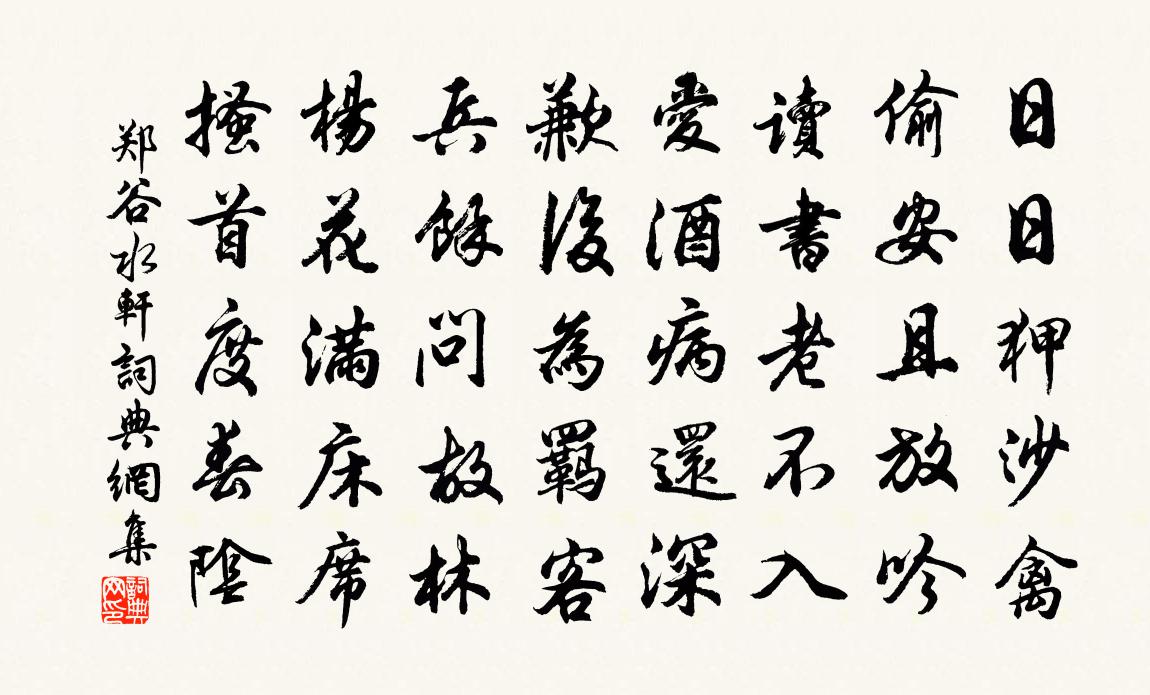 日日狎沙禽
偷安且放吟
讀書老不入
愛酒病還深
歉後為羈客
兵餘問故林
楊花滿床席
搔首度春陰
郑谷水軒詞典網集
詞典网印